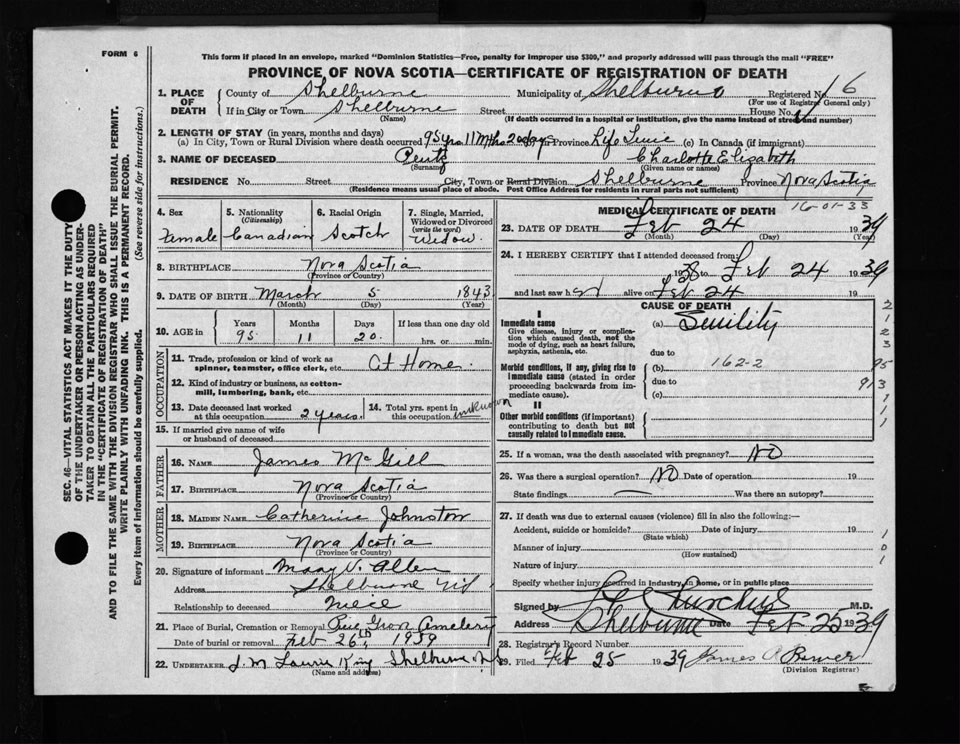 FORM 6
This form if placed in an envelope, marked "Dominion Statistics—Free, penalty for improper use $300," and properly addressed will pass through the mail "FREE"
PROVINCE OF NOVA SCOTIA—CERTIFICATE OF REGISTRATION OF DEATH
SEC. 46—VITAL STATISTICS ACT MAKES IT THE DUTY
OF THE UNDERTAKER OR PERSON ACTING AS UNDER-
TAKER TO OBTAIN ALL THE PARTICULARS REQUIRED
IN THE "CERTIFICATE OF REGISTRATION OF DEATH"
AND TO FILE THE SAME WITH THE DIVISION REGISTRAR WHO SHALL ISSUE THE BURIAL PERMIT.
WRITE PLAINLY WITH UNFADING INK. THIS IS A PERMANENT RECORD.
Every item of Information should be carefully supplied. (See reverse side for instructions.)
1. PLACE OF DEATH County of Shelburne Municipality of Shelburne Registered No. 16
(For use of Registrar General only)
If in City or Town Shelburne Street House No.
(Name) (If death occurred in a hospital or institution, give the name instead of street and number)
2. LENGTH OF STAY (in years, months and days)
(a) In City, Town or Rural Division where death occurred 95 yrs 11 Mths 20 days In Province Life Time (c) In Canada (if immigrant)
3. NAME OF DECEASED Pentz Charlotte Elizabeth
(Surname) (Given name or names)
RESIDENCE No. Street City, Town or Rural Division Shelburne Province Nova Scotia
(Residence means usual place of abode. Post Office Address for residents in rural parts not sufficient)
4. Sex Female
5. Nationality (Citizenship) Canadian
6. Racial Origin Scotch
7. Single, Married, Widowed or Divorced (write the word) Widow.
8. BIRTHPLACE Nova Scotia
(Province or Country)
9. DATE OF BIRTH March 5 1843
(Month) (Day) (Year)
10. AGE IN Years 95 Months 11 Days 20. If less than one day old hrs. or min.
OCCUPATION
11. Trade, profession or kind of work as
spinner, teamster, office clerk, etc. At Home.
12. Kind of industry or business, as cotton-
mill, lumbering, bank, etc.
13. Date deceased last worked
at this occupation 2 years.
14. Total yrs. spent in
this occupation unknown
15. If married give name of wife
or husband of deceased
FATHER
16. NAME James McGill
17. BIRTHPLACE Nova Scotia
(Province or Country)
MOTHER
18. MAIDEN NAME Catherine Johnston
19. BIRTHPLACE Nova Scotia
(Province or Country)
20. Signature of informant Mary V. Allen
Address Shelburne NS
Relationship to deceased niece
21. Place of Burial, Cremation or Removal Pine Grove Cemetery
Date of burial or removal Feb 26th 1939
22. UNDERTAKER J. M. Laurie King Shelburne NS
(Name and address)
MEDICAL CERTIFICATE OF DEATH
16-01-33
23. DATE OF DEATH Feb 24 1939
(Month) (Day) (Year)
24. I HEREBY CERTIFY that I attended deceased from
1938 to Feb 24 1939
and last saw her alive on Feb 24 19
CAUSE OF DEATH
I
Immediate cause
Give disease, injury or complica-
tion which caused death, not the
mode of dying, such as heart failure,
asphyxia, asthenia, etc.
(a) Senility
due to
Morbid conditions, if any, giving rise to
immediate cause (stated in order
proceeding backwards from im-
mediate cause).
(b) 162-2
due to
(c)
II
Other morbid conditions (if important)
contributing to death but not
causally related to immediate cause.
2
1
2
3
95
913
1
1
25. If a woman, was the death associated with pregnancy? NO
26. Was there a surgical operation? NO Date of operation 19
State findings — Was there an autopsy?
27. If death was due to external causes (violence) fill in also the following:—
Accident, suicide or homicide? Date of injury 19
(State which)
Manner of injury
(How sustained)
Nature of injury
1
0
1
Specify whether injury occurred in industry, in home, or in public place
Signed by M.D.
Address Shelburne Date Feb 25 1939
28. Registrar's Record Number
29. Filed Feb 25 1939 James Bower
(Division Registrar)